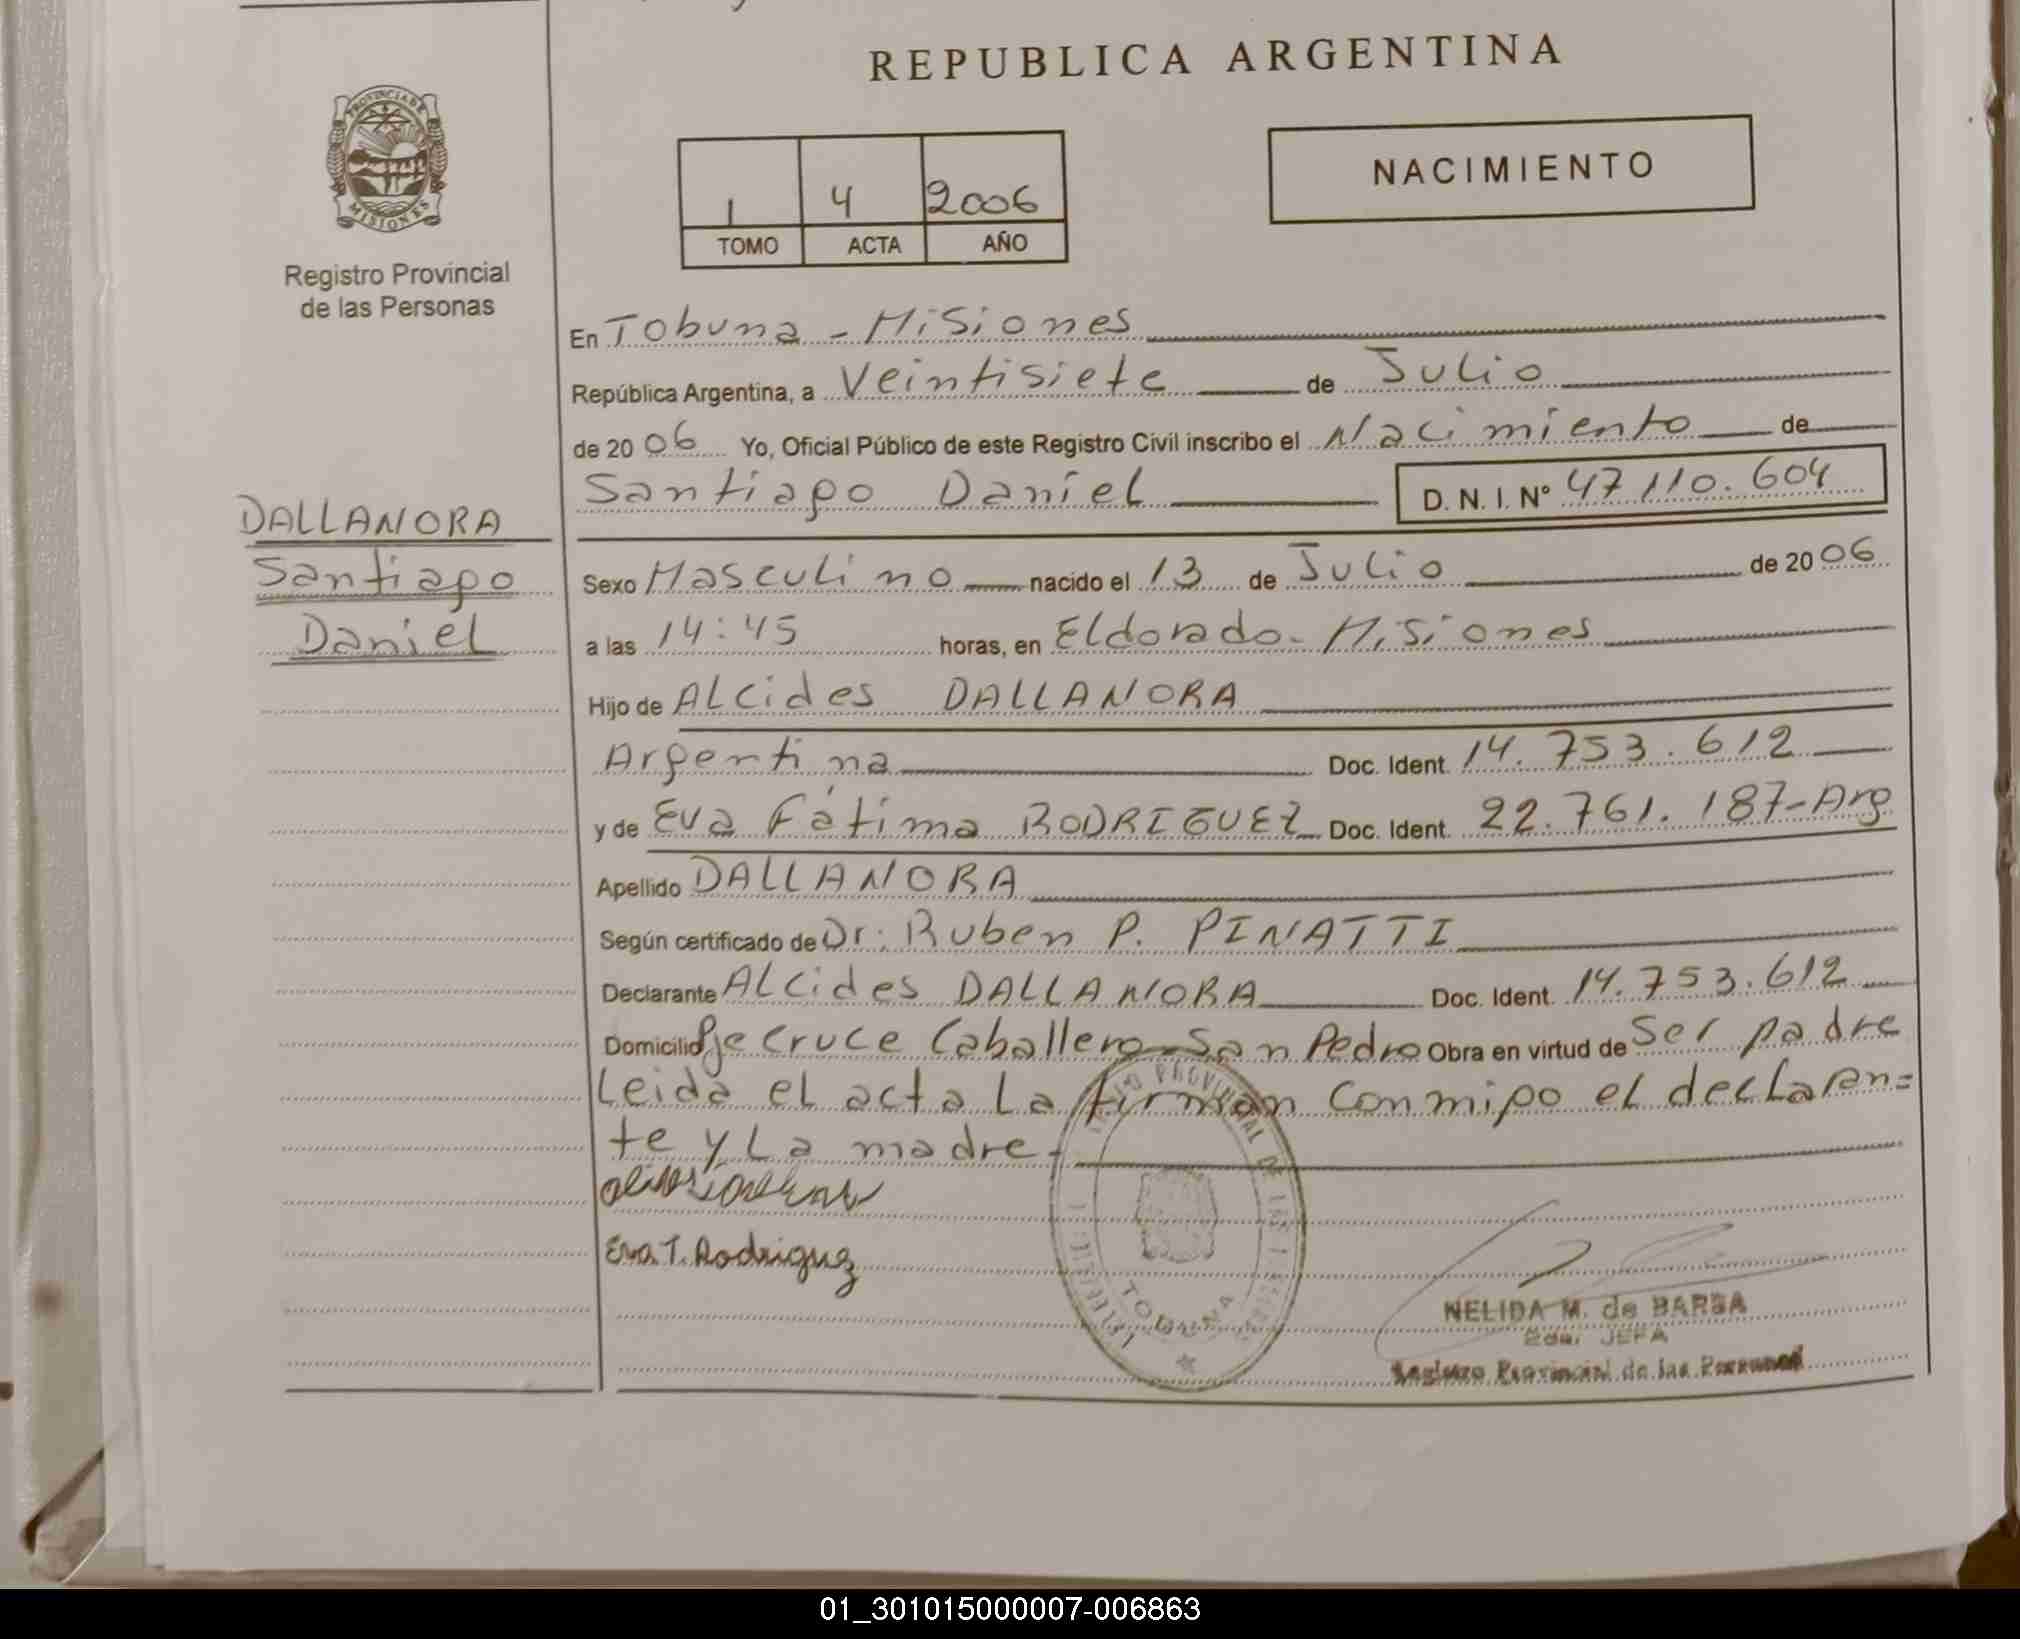 REPUBLICA ARGENTINA
PROVINCIA DE
MISIONES
Registro Provincial
de las Personas
1 4 2006
TOMO ACTA AÑO
NACIMIENTO
En Tobuna - Misiones
República Argentina, a Veintisiete de Julio
de 20 06 Yo, Oficial Público de este Registro Civil inscribo el Nacimiento de
Santiago Daniel D. N. I. Nº 47110.604
DALLANORA
Santiago
Daniel
Sexo Masculino nacido el 13 de Julio de 20 06
a las 14:45 horas, en Eldorado - Misiones
Hijo de Alcides DALLANORA
Argentina Doc. Ident. 14.753.612
y de Eva Fátima RODRIGUEZ Doc. Ident. 22.761.187-Arg
Apellido DALLANORA
Según certificado de Dr. Ruben P. PINATTI
Declarante Alcides DALLANORA Doc. Ident. 14.753.612
Domicilio Pje Cruce Caballero - San Pedro Obra en virtud de Ser padre
Leida el acta la firman conmigo el declaran=
te y La madre -
Eva. T. Rodriguez
TOBUNA
NELIDA M. de BARBA
JEFA
Registro Provincial de las Personas
01_301015000007-006863